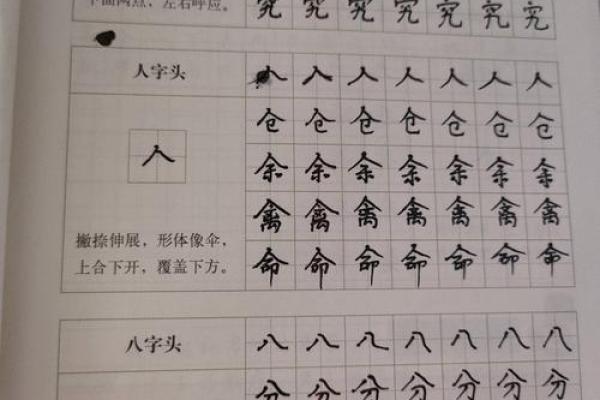 下面两点，左右呼应。
究 究 究 究 究 究 究
人字头
人 人 人 人 人 人 人
仓 仓 仓 仓 仓 仓 仓
人
余 余 余 余 余 余 余
禽 禽 禽 禽 禽 禽 禽
撇捺伸展，形体像伞，
上合下开，覆盖下方。
命 命 命 命 命 命 命
八字头
八 八 八 八 八 八 八
分 分 分 分 分 分 分